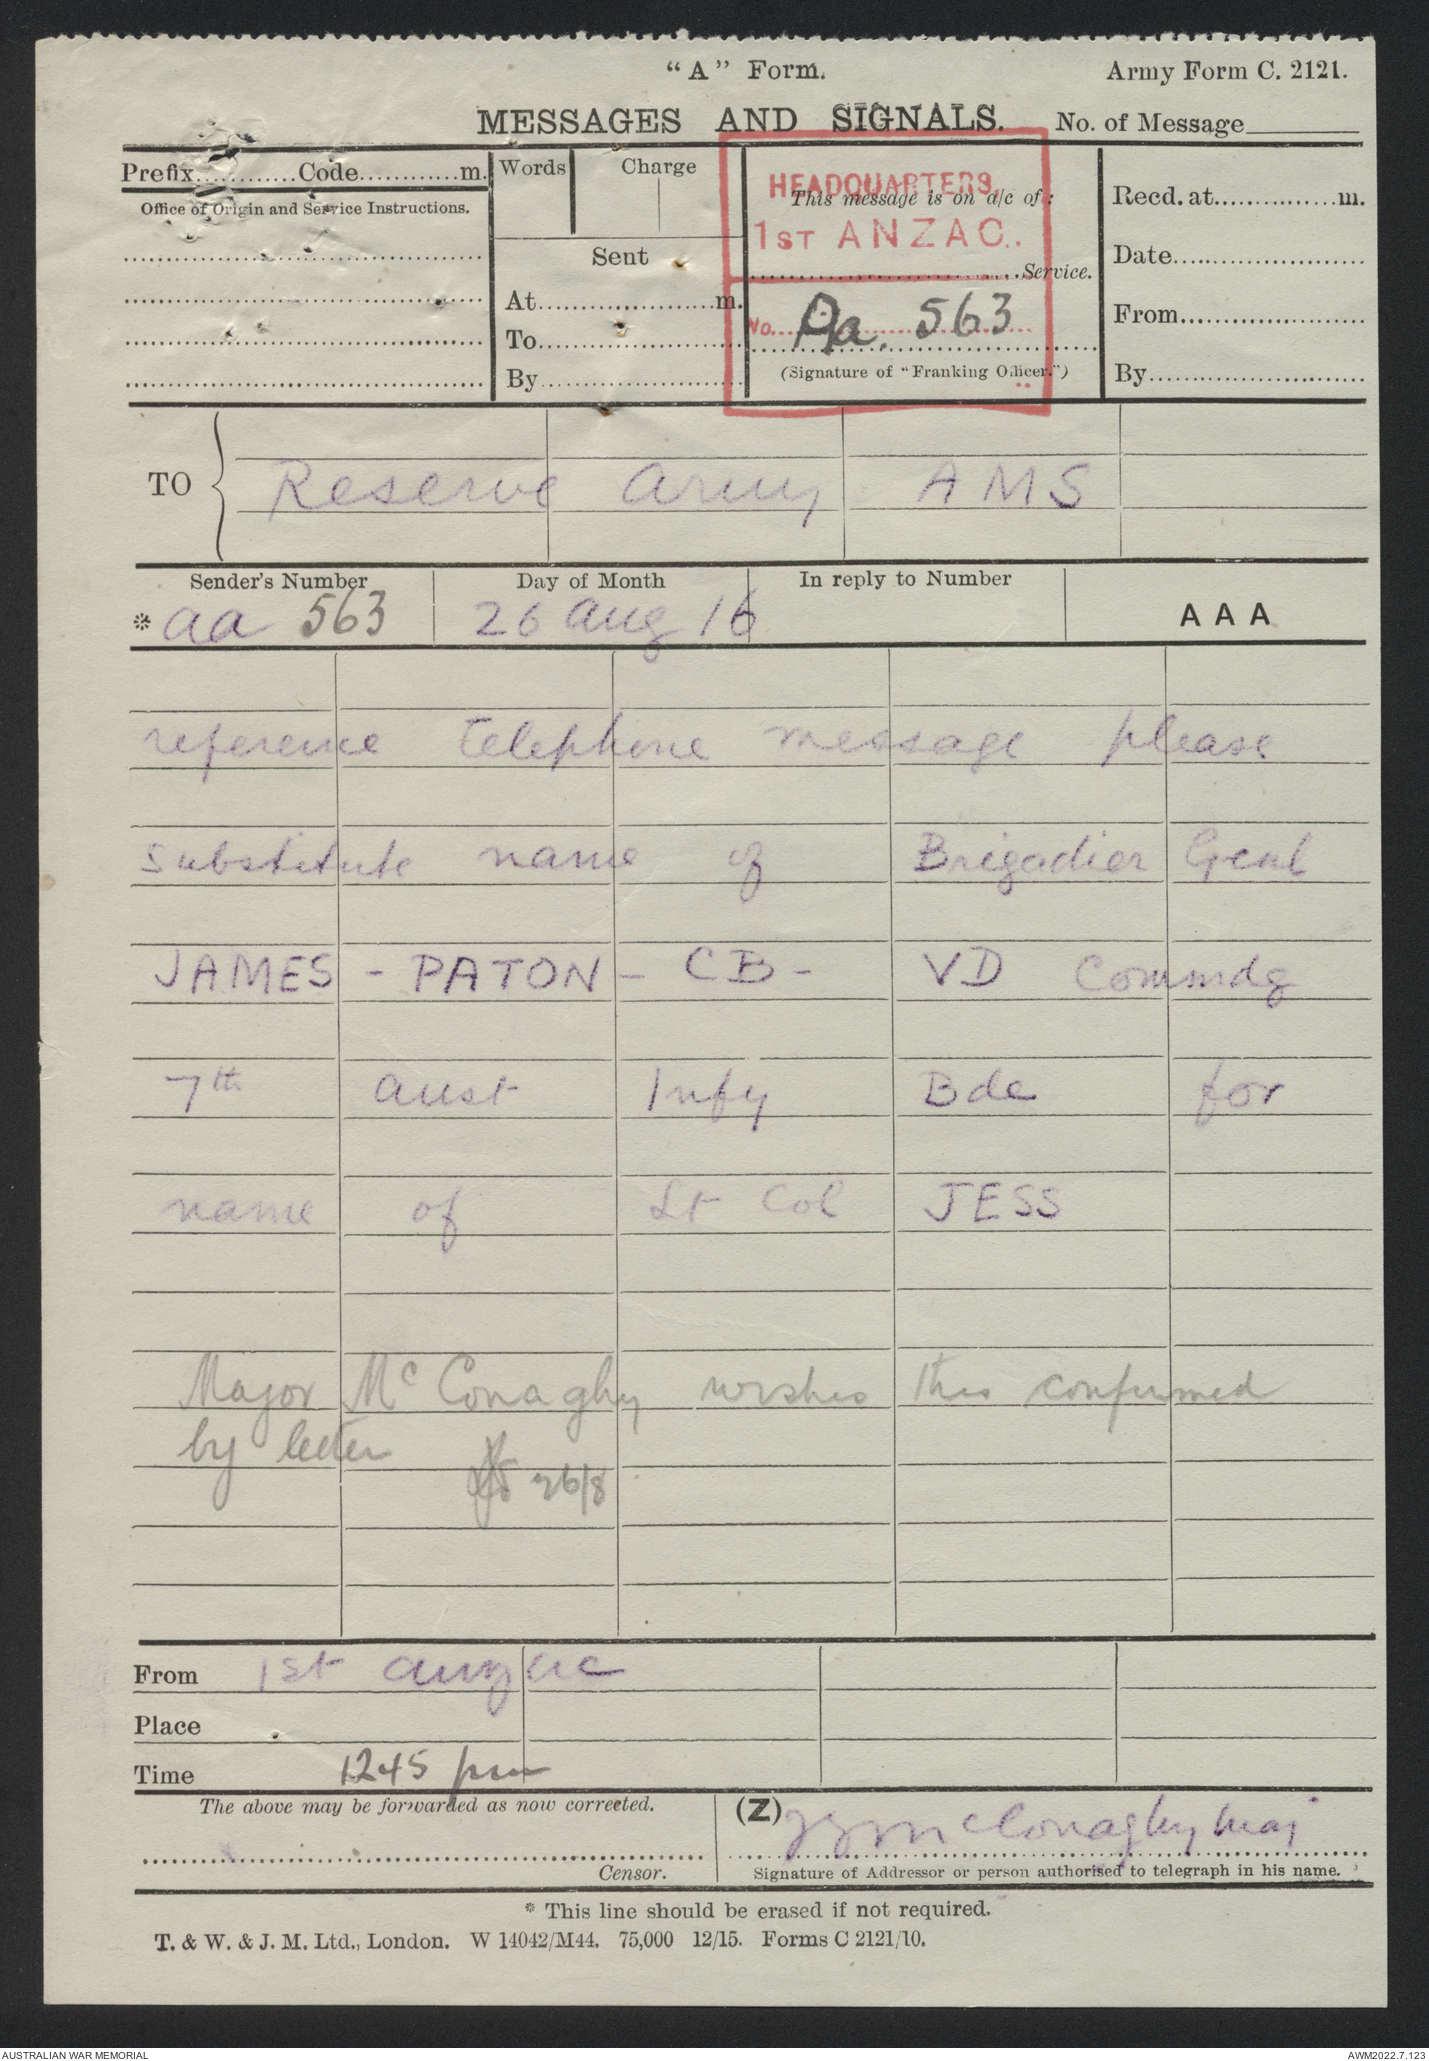 "A" Form.
Army Form C. 2121.
MESSAGES AND SIGNALS.
No. of Message
Prefix............Code............m.
Office of Origin and Service Instructions.
Words
Charge
Sent
At....................m.
To
By
HEADQUARTERS,
This message is on a/c of:
1ST ANZAC.
Service.
No. Aa. 563
(Signature of "Franking Officer.")
Recd. at...............m.
Date
From
By
TO
Reserve Army AMS
Sender's Number
Day of Month
In reply to Number
* aa 563
26 Aug 16
AAA
reference telephone message please
substitute name of Brigadier Genl
JAMES - PATON - CB - VD Commdg
7th Aust Infy Bde for
name of Lt Col JESS
Major McConaghy wishes this confirmed
by letter
26/8
From 1st Anzac
Place
Time 1245 pm
The above may be forwarded as now corrected.
(Z)
McConaghy Maj
Censor.
Signature of Addressor or person authorised to telegraph in his name.
* This line should be erased if not required.
T. & W. & J. M. Ltd., London. W 14042/M44. 75,000 12/15. Forms C 2121/10.
AUSTRALIAN WAR MEMORIAL
AWM2022.7.123